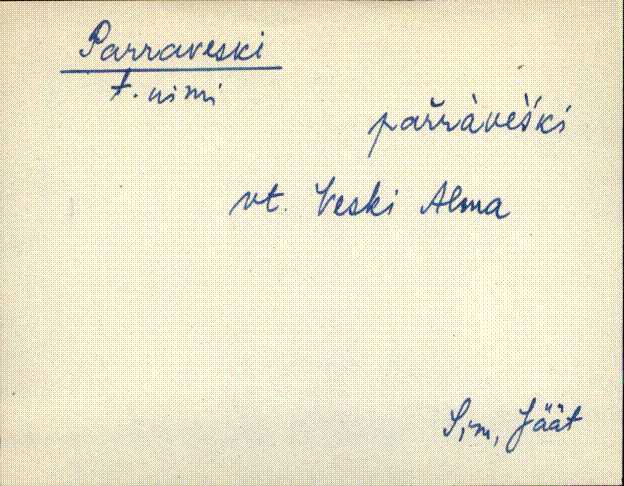 Parraveski
t. nimi
pař̀ràvèški
vt. Veski Alma
Sim, Jäät